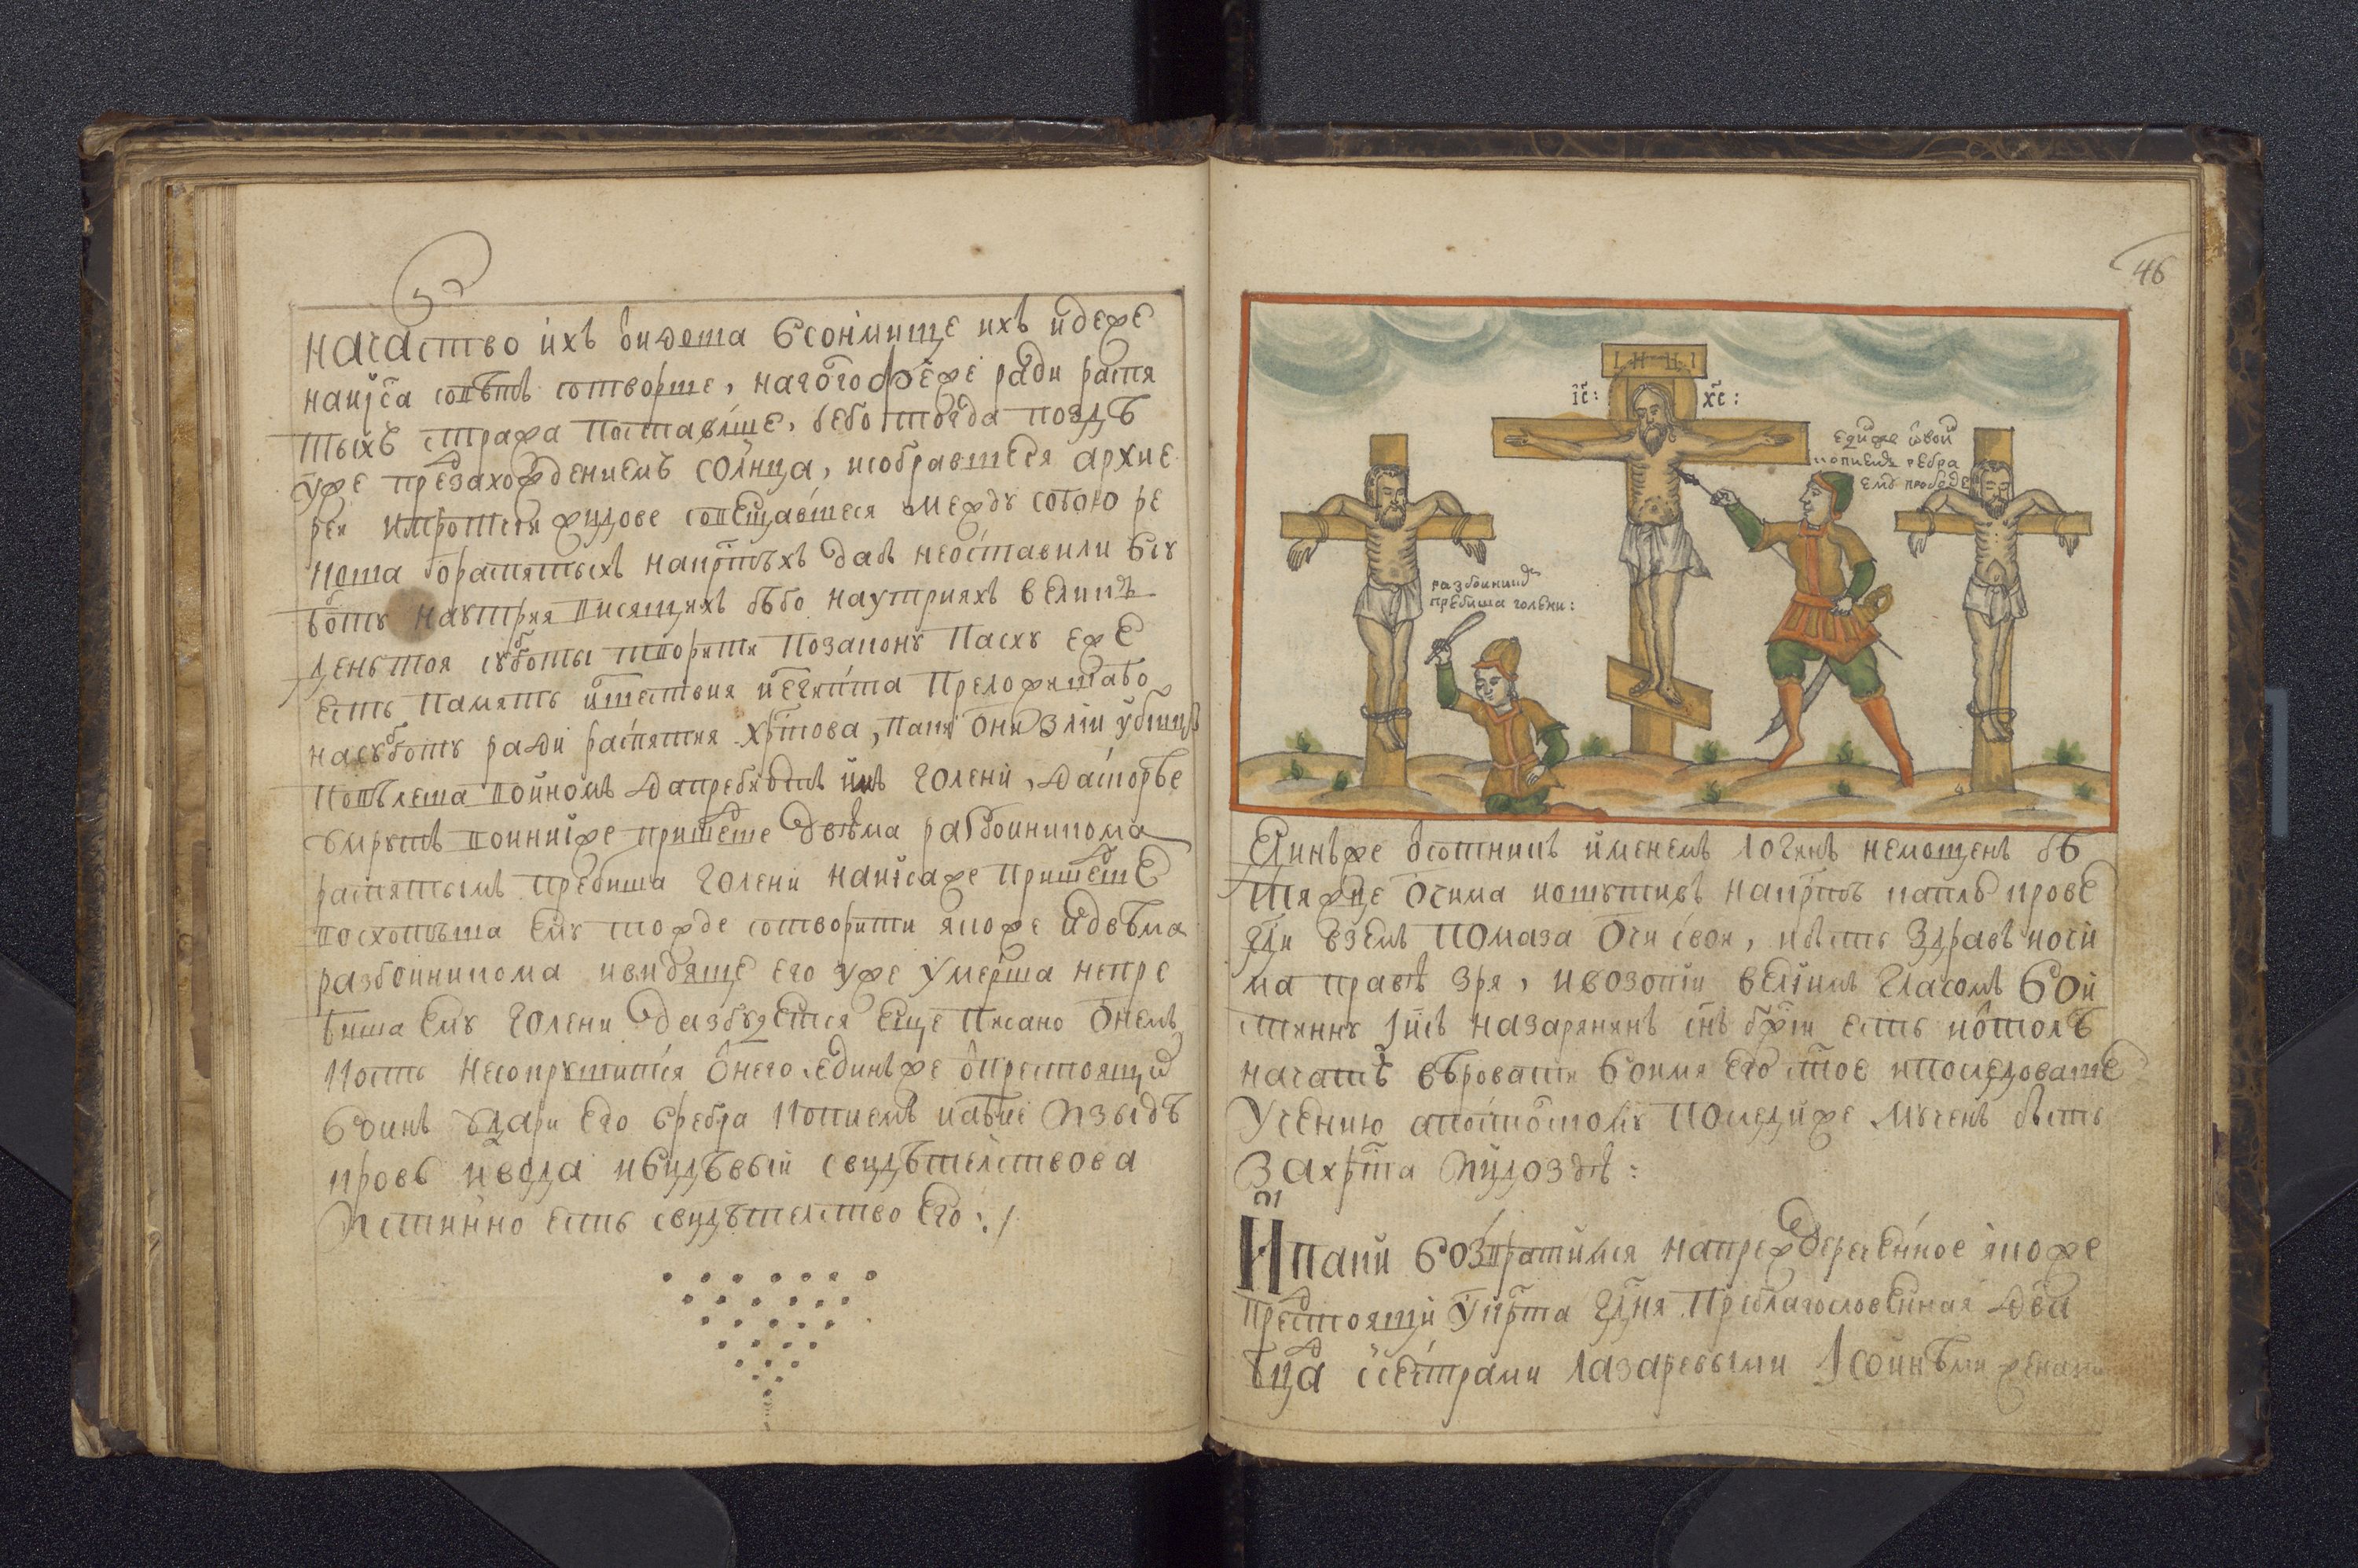 начаство ихъ видоша всонмище ихъ идеже
наиса совѣтъ сотворше, на того же ради распя
тыхъ стража поставлше, бебо тогда поздѣ
уже предзахождениемъ солнца, исобравшеся архие
реи ипротчии жидове совещавшеся между собою ре
коша ораспятыхъ накртѣхъ дабы неоставили всу
боту наутрия висящихъ бѣбо наутрияхъ великъ
день тоя субботы творити позакону пасху еже
есть память изшествия изегипта преложитабо
насубботу ради распятия хртова, паки они злии убиицы
повѣлеша воиномъ дапребиютъ имъ голени, даскорѣе
умрутъ воиниже пришедше двѣма разбоникома
распятымъ пребиша голени наисаже пришедше
восхотѣша ему тожде сотворити якоже идвѣма
разбоиникома ивидяще его уже умерша непре
биша ему голени дазбудется еще писано онемъ
кость несокрушится онего. единъже опрестоящид
воинъ удари его вребра копиемъ иабие изыдѣ
кровь ивода ивидѣвыи свидѣтелствова
истинно есть свидѣтелство его :/
46
І Н Ц І
іс : хс :
единже ѿвои
копиемъ ребра
ему прободе
разбоиникѡ
пребиша голени :
Единъже ѿсотникъ именемъ логинъ немощенъ бѣ
тяжце очима икоснутивъ накртѣ капль крове
гди вземъ помаза очи своя, ибысть здравъ иочи
ма правѣ зря, ивозопи велиимъ гласомъ вои
стинну іисъ назарянинъ снъ бжии есть иѿтолѣ
начатъ вѣровати воимя его стое ипоследоваше
учению апостолску последиже мученъ бысть
захрта ипидоздѣ :
Ипаки возвратимся напреждереченное якоже
предстоящи укрта гдня преблагословенная два
бца ссестрами лазаревыми исоинѣми женами